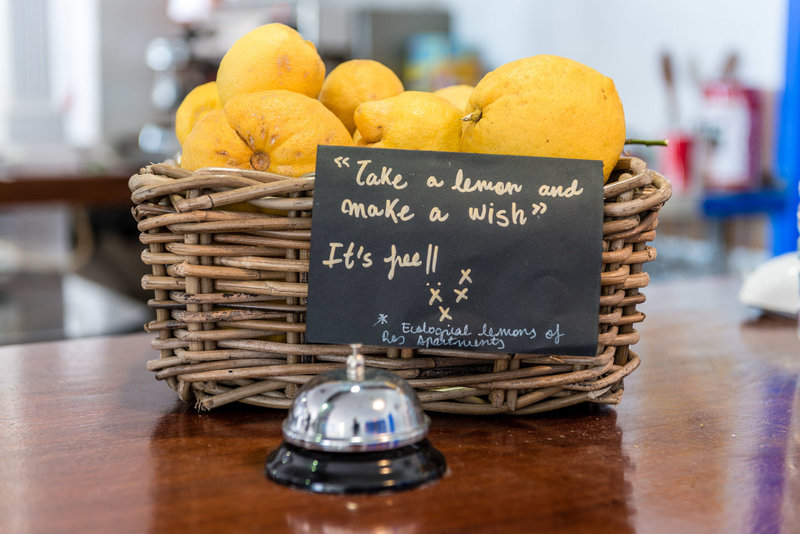 “Take a lemon and
make a wish”
It's free!!
x
x x
x
* Ecological lemons of
Ras Apartments